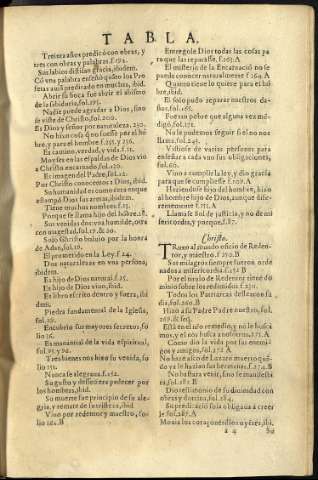 TABLA.
Treinta años predicò con obras, y
tres con obras y palabras. f.172.
Sus labios distilan gracia, ibidem.
Cō vna palabra enseñò quãto los Pro
fetas auiã predicado en muchas, ibid.
Abrir su boca fue abrir el abismo
de la sabiduria, fol.175.
Nadie puede agradar a Dios, sino
se viste de Christo, fol.200.
Es Dios y señor por naturaleza. 250.
No hizo cosa q̄ no fuesse por el hõ
bre, y para el hombre f.255. y 256.
Es camino, verdad, y vida. f.15.
Moyses en las espaldas de Dios vio
a Christo encarnado, fol.120.
Es imagen del Padre, fol.12.
Por Christo conocemos a Dios, ibid.
Su humanidad es como cera en que
estampò Dios sus armas, ibidem.
Tiene muchos nombres. f.15.
Porque se llama hijo del hõbre.18.
Sus venidas dos vna humilde, otra
con magestad, fol.17. &
Solo Christo boluio por la honra
de Adan, fol.19.
El prometido en la Ley. f.24.
Dos naturalezas en vna persona,
ibidem.
Es hijo de Dios natural. f.25.
Es hijo de Dios viuo, ibid.
Es libro escrito dentro y fuera, ibi
dem.
Piedra fundamental de la Iglesia,
fol.
Encubrio sus mayores secretos, fo
lio 36.
Es manantial de la vida espiritual,
fol.75. y
Tres bienes nos hizo su venida, fo
lio 151.
Nunca se alegraua. f.152.
Su gusto y desseo era padecer por
los hombres, ibid.
Su muerte fue principio de su ale
gria, y remate de su tristeza, ibid.
Vino por redemtor y maestro, fo
lio 161. B
Entregole Dios todas las cosas pa
ra que las reparasse, f.163. A
El misterio de la Encarnaciõ no se
puede conocer naturalmente f.164. A
Quanto tiene lo quiere para el hõ
bre, ibid.
El solo pudo reparar nuestros da-
ños, fol.165.
Fue vn pebre que alguna vez mor-
dio, fol.171.
No le podemos seguir si el no nos
llama, fol.245.
Vistiose de varias personas para
enseñar a cada vno sus obligaciones,
fol.60.
Vino a cumplir la ley, y dio gracia
para que se cumpliesse f.107. A
Haziendose hijo del hombre, hizo
al hombre hijo de Dios, aunque dife-
rentemente f.115. A
Llamase Sol de justicia, y no de mi
sericordia, y porque. f.87.
Christo.
Truxo al mundo oficio de Redem-
tor, y maestro. f.250. B
Sus milagros siempre fueron orde
nados a misericordia. f.251. B
Por el titulo de Redemtor tiene do
minio sobre los redemidos f.251.
Todos los Patriarcas dessearon su
dia, fol.260. B
Hizo a su Padre Padre nuestro, fol.
268. & 269.
Està en el yo remedio, y no le busca
mos, y el nos busca a nosotros, 271. A
Como dio la vida por sus enemi-
gos y amigos, fol.272. A
No hazia caso de Lazaro muerto quã-
do y le hazian sus hermanas, f.274. B
No bastara venir, sino se manifesta
ra, fol.281. B
Dio testimonio de su diuinidad con
obras y dotrina, fol.284.
Su predicaciõ solo obligaua a creer
le fol.287. A
Mouia los coraçones dino oyẽres, ibi.
a 4 Su